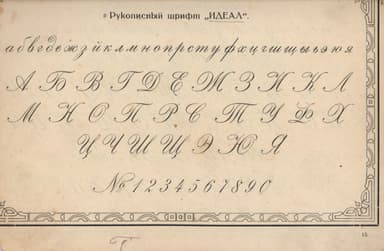 Рукописный шрифт „ИДЕАЛ“.
абвгдежзйклмнопрстуфхцчшщыьэюя
А Б В Г Д Е Ж З К К Л
М Н О П Р С Т У Ф Х
Ц Ч Ш Щ Э Ю Я
№ 1 2 3 4 5 6 7 8 9 0
15